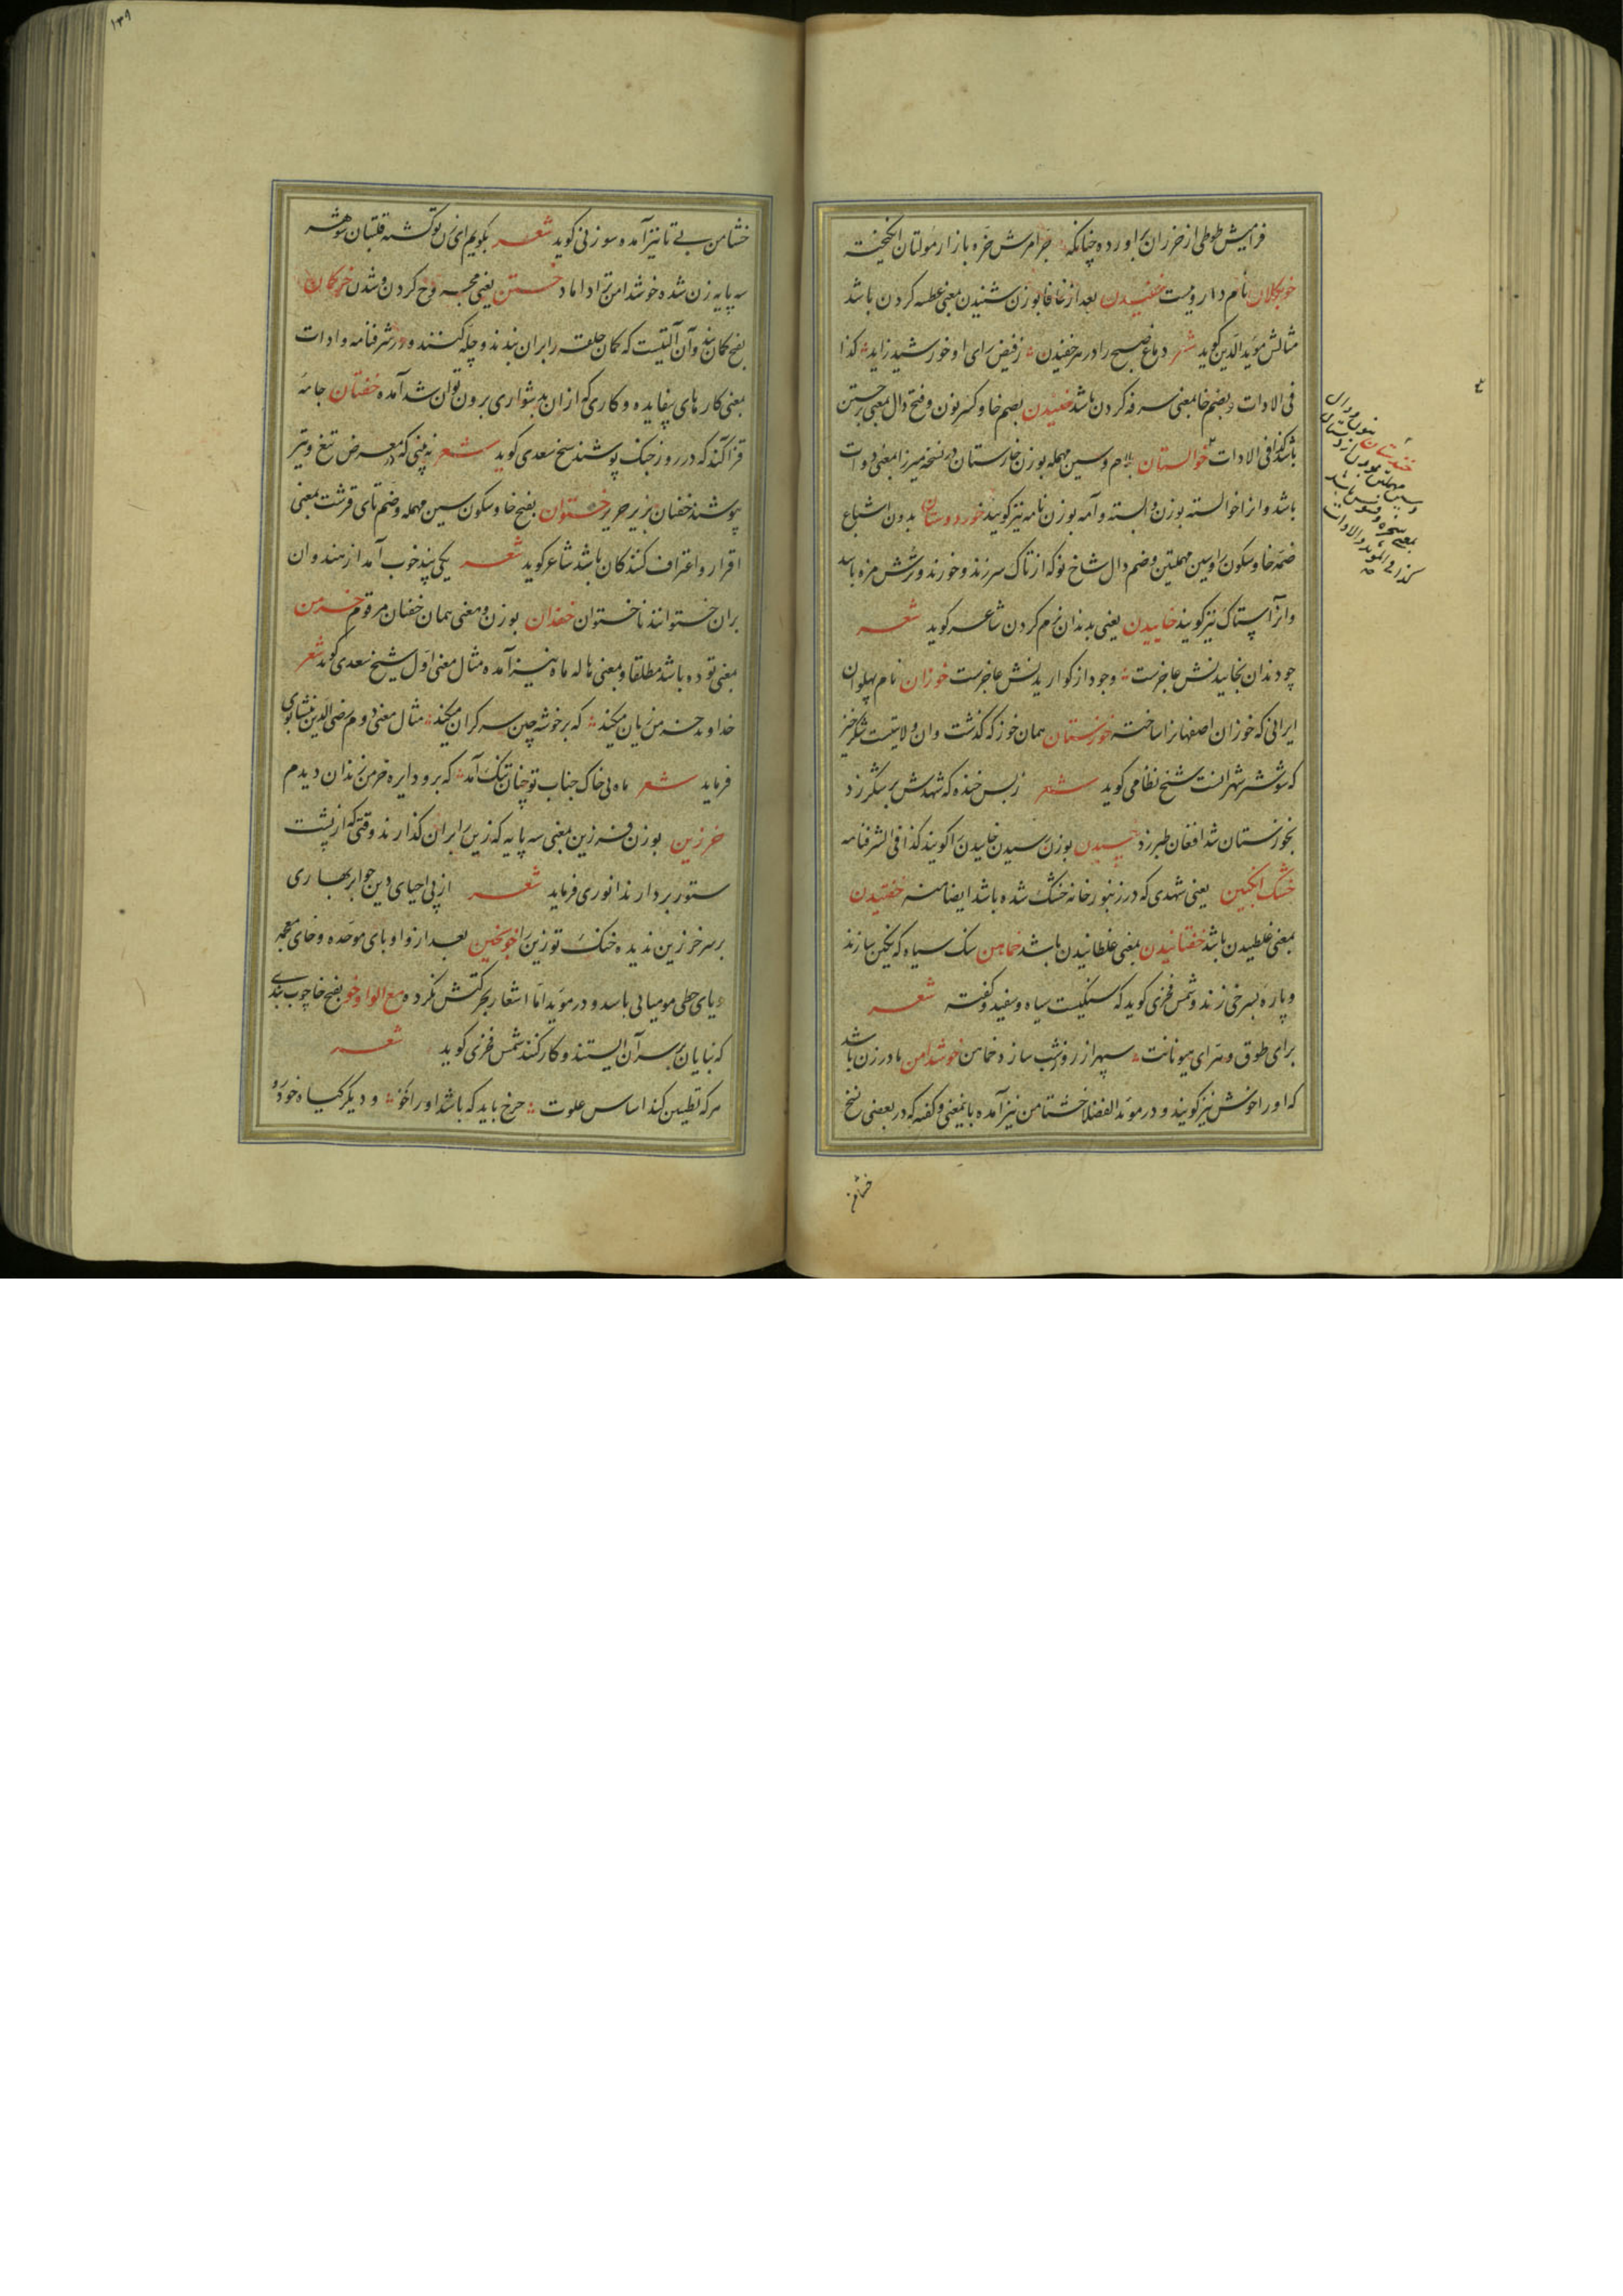 فزایش طوطی از خزران براورده چنانکه خرامش خره بازار مولتان انگیخته
خوبکلان نام داروییست خفیدن بعد از خا فا بوزن شنیدن بمعنی عطسه کردن باشد
مثالش موید الدین گوید شعر دماغ صبح را در سر خفیدن زفیض رای او خورشید زاید کذا
فی الادات و بضم خا بمعنی سرفه کردن باشد خنیدن بضم خا و کسر نون و فتح دال بمعنی برجستن
باشد کذا فی الادات خوالستان بلام و سین مهمله بوزن خارستان در نسخه میرزا بمعنی دوات
باشد و انرا خوالسته بوزن وابسته و آمه بوزن نامه نیز گویند خوردوستان بدون اشباع
ضمه خا و سکون را و سین مهملتین و ضم دال شاخ نو که از تاک سر زند و خورند و ترش مزه باشد
و انرا ستاک نیز گویند خاییدن یعنی بدندان نرم کردن شاعر گوید شعر
چو دندان بخاییدنش عاجزست وجود از گواریدنش عاجزست خوزان نام پهلوان
ایرانی که خوزان اصفهانرا ساخته خوزستان همان خوز که گذشت و ان ولایتیست شکرخیز
که شوشتر شهر انست شیخ نظامی گوید شعر زبس خنده که شهدش بر شکر زد
بخوزستان شد افغان طبرزد بوزن رسیدن خلیدن را گویند کذا فی الشرفنامه
خشک انگبین یعنی شهدی که در زنبور خانه خشک شده باشد ایضا منه خفتیدن
بمعنی غلطیدن باشد خفتانیدن بمعنی غلطانیدن باشد خماهن سنک سیاه که نگین سازند
و پاره بسرخی زند و شمس فخری گوید که سنگیست سیاه و سفید و گفته شعر
برای طوق و سپهر از روز و شب سازد خماهن خوشدامن مادر زن باشد
که او را خوش نیز گویند و در موید الفضلا خشتامن نیز آمده باینمعنی و گفته که در بعضی نسخ
خندستان بنون و دال
و سین مهملتین بوزن
بمعنی سخره و فسوس باشد
کذا فی الموید و الادات
خشامن
۱۳۹
خشامن بی تا نیز آمده سوزنی گوید شعر بگویم ای زن تو گشته قلتبان شوهر
سه پایه زن شده خوشدامن ترا داماد خستن یعنی مجروح کردن و شدن خرکمان
بفتح کمان بند و آن آلتیست که کمان حلقه را بران بندند و چله کنند و در شرفنامه و ادات
بمعنی کارهای بیفایده و کاری که از ان بدشواری برون توان شد آمده خفتان جامه
قزاکند که در روز جنک پوشند شیخ سعدی گوید شعر نه بینی که در معرض تیغ و تیر
بپوشند خفتان بزیر حریر خستوان بفتح خا و سکون سین مهمله و ضم تای قرشت بمعنی
اقرار و اعتراف کنندگان باشد شاعر گوید شعر یکی پند خوب آمد از هندوان
بران خستوانند ناخستوان خفدان بوزن و معنی همان خفتان مرقوم خرمن
بمعنی توده باشد مطلقا و بمعنی هاله ماه نیز آمده مثال معنی اول شیخ سعدی گوید شعر
خداوند خرمن زیان میکند که بر خوشه چین سر گران میکند مثال معنی دوم رضی الدین نیشابوری
فرماید شعر ماه بی خاک جناب تو چنان تنک آمد که برو دایره خرمن زندان دیدم
خرزین بوزن فرزین بمعنی سه پایه که زین را بران گذارند وقتی که از پشت
ستور بردارند انوری فرماید شعر از پی احیای دین جو ابر بهاری
بر سر خرزین ندیده خنک تو زین را خوبخین بعد از واو بای موحده و خای معجمه
و یای حطی مومیایی باشد و در موید اما اشعار بحرکتش نکرده مع الواو خو بفتح خا چوب بندی
که بنایان بر سر آن ایستند و کار کنند شمس فخری گوید شعر
هر که تطیین کند اساس علوت چرخ باید که باشد او را خو و دیگر گیاه خودرو